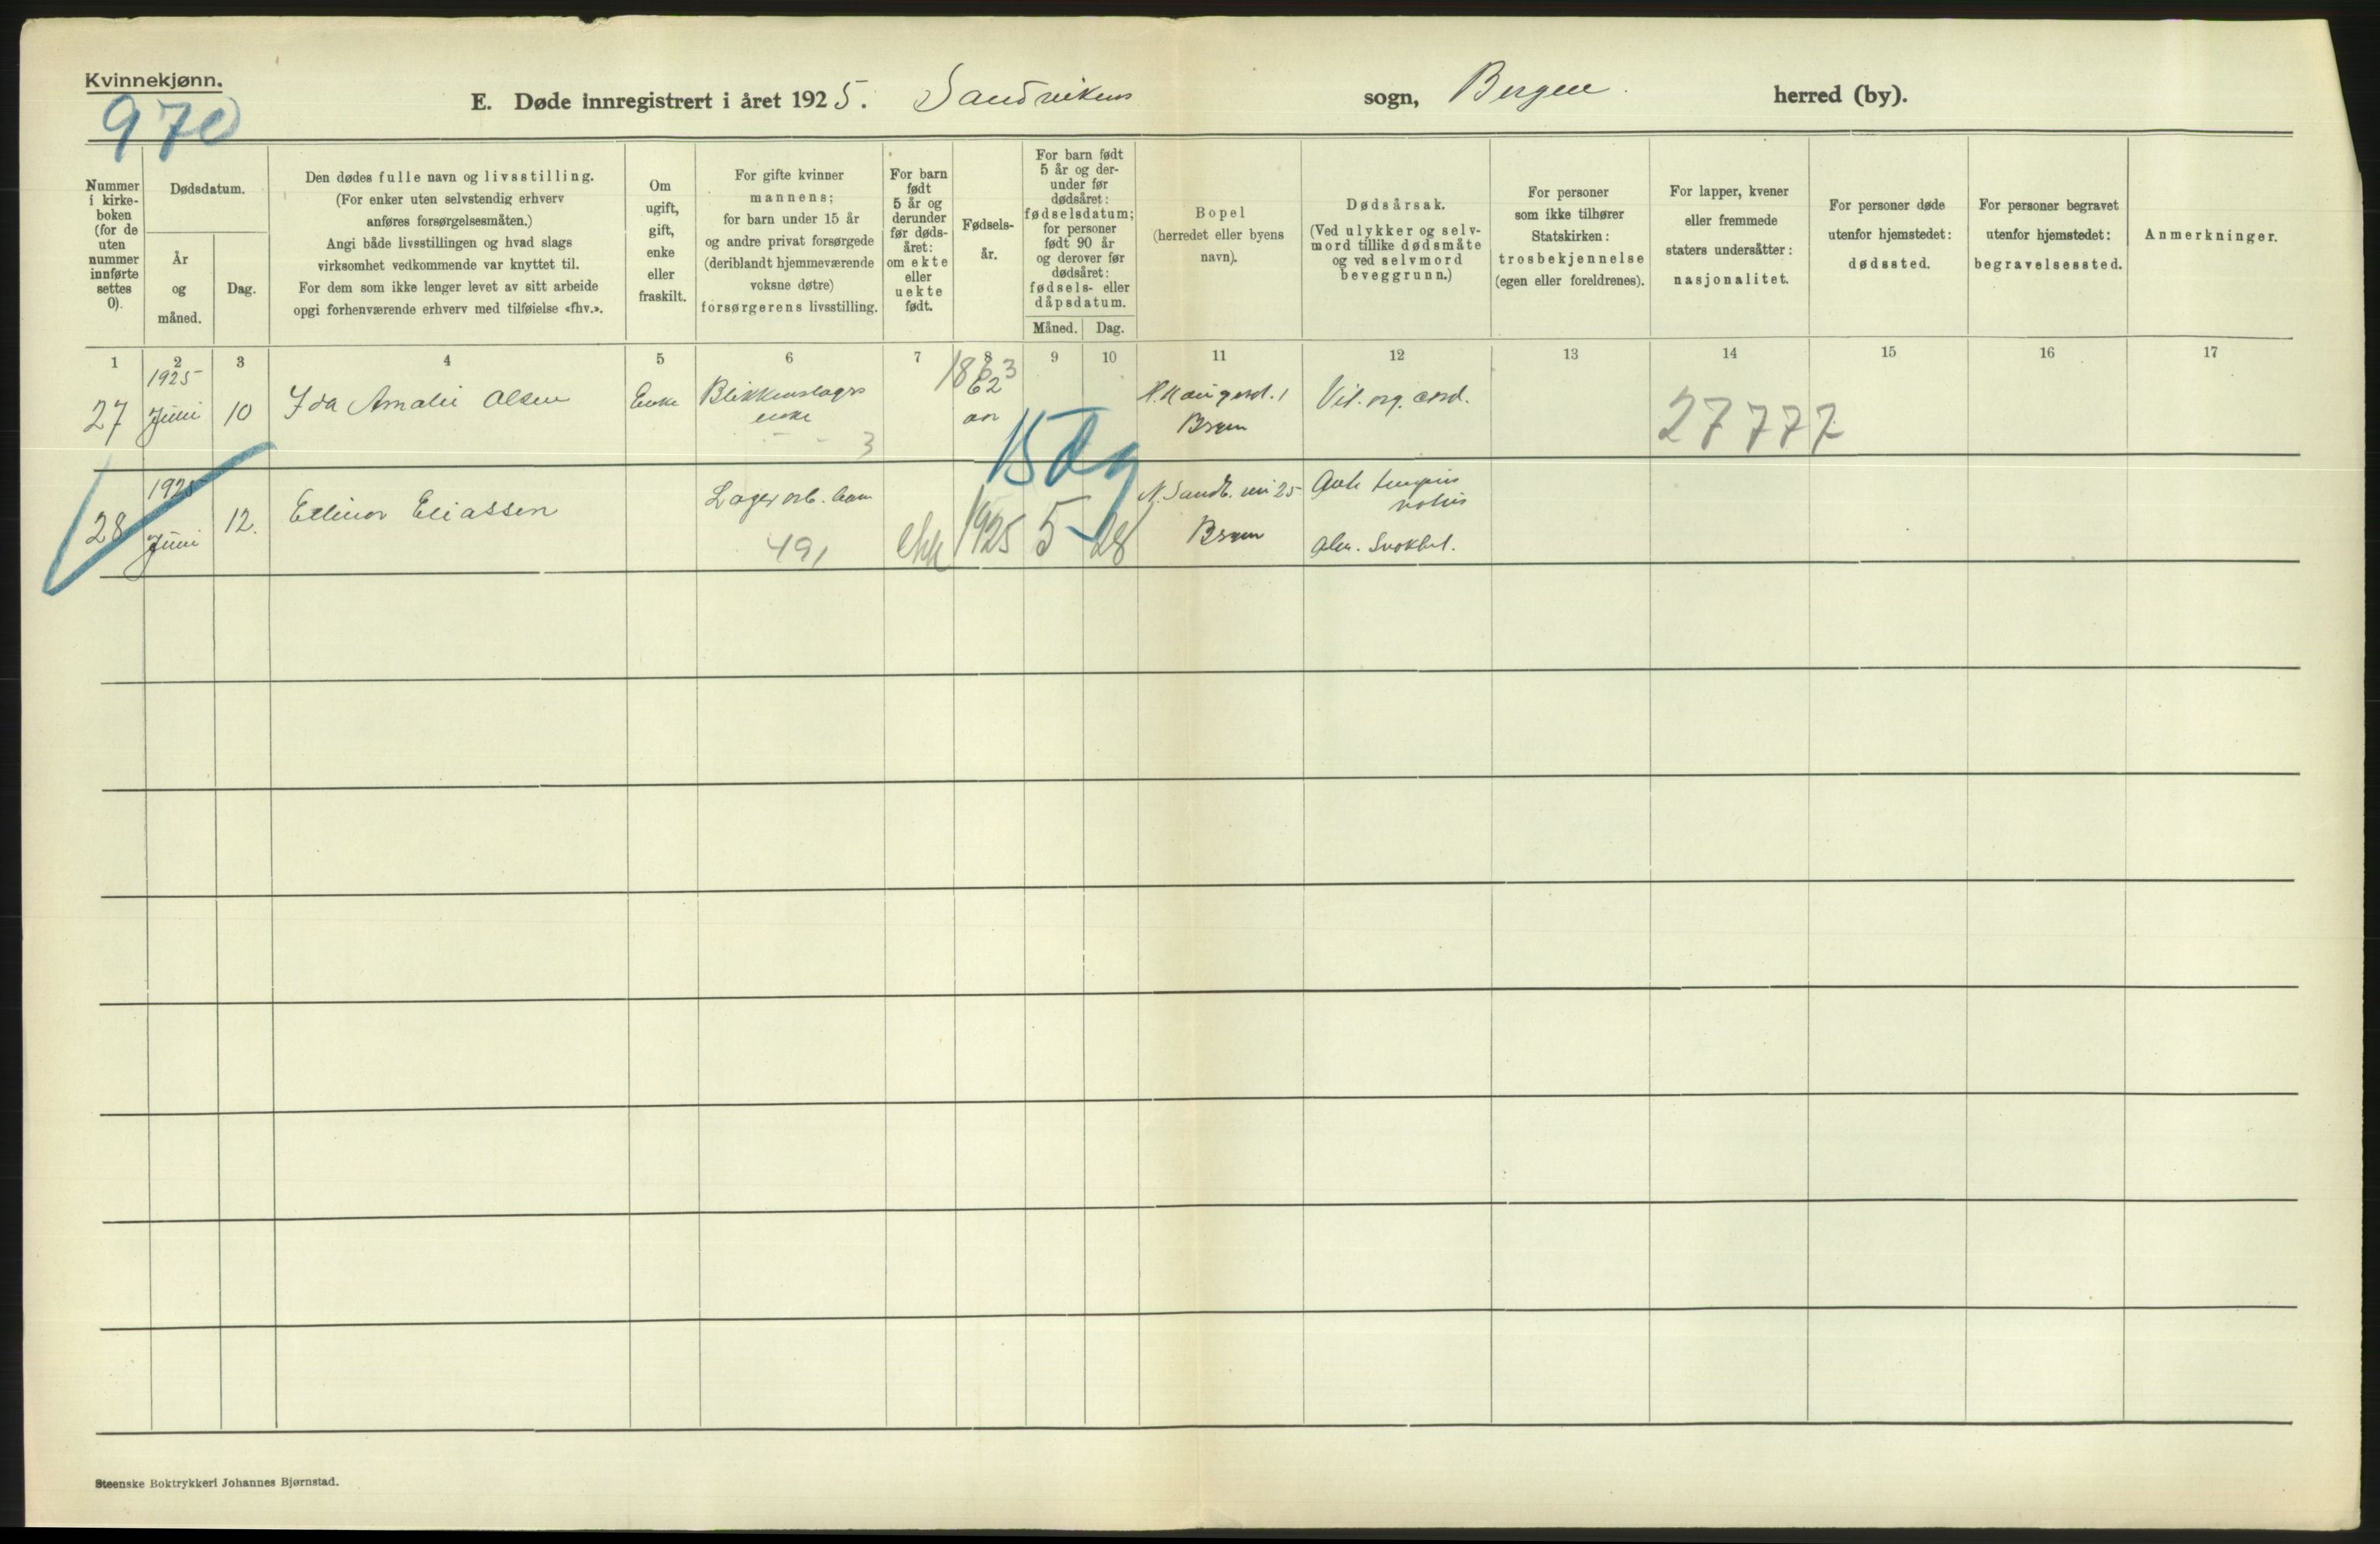 Kvinnekjønn.
970
E. Døde innregistrert i året 1925. Sandvikens sogn, Bergen herred (by).
Nummer i kirke-boken (for de uten nummer innførte settes 0).
Dødsdatum.
År og måned.
Dag.
Den dødes fulle navn og livsstilling.
(For enker uten selvstendig erhverv
anføres forsørgelsesmåten.)
Angi både livsstillingen og hvad slags
virksomhet vedkommende var knyttet til.
For dem som ikke lenger levet av sitt arbeide
opgi forhenværende erhverv med tilføielse «fhv.».
Om
ugift,
gift,
enke
eller
fraskilt.
For gifte kvinner
mannens;
for barn under 15 år
og andre privat forsørgede
(deriblandt hjemmeværende
voksne døtre)
forsørgerens livsstilling.
For barn
født
5 år og
derunder
før døds-
året:
om ekte
eller
uekte
født.
Fødsels-
år.
For barn født
5 år og der-
under før
dødsåret:
fødselsdatum;
for personer
født 90 år
og derover før
dødsåret:
fødsels- eller
dåpsdatum.
Måned. Dag.
Bopel
(herredet eller byens
navn).
Dødsårsak.
(Ved ulykker og selv-
mord tillike dødsmåte
og ved selvmord
beveggrunn.)
For personer
som ikke tilhører
Statskirken:
trosbekjennelse
(egen eller foreldrenes).
For lapper, kvener
eller fremmede
staters undersåtter:
nasjonalitet.
For personer døde
utenfor hjemstedet:
dødssted.
For personer begravet
utenfor hjemstedet:
begravelsessted.
Anmerkninger.
1 2 3 4 5 6 7 8 9 10 11 12 13 14 15 16 17
1925
27 Juni 10 Ida Amalie Olsen Enke Blikkenslagers
enke
3
1863
62
aar
Bergen
Vit. org. cord.
27777
15 Dg
1925
28 Juni 12. Ellinor Eliassen Lagerarb. barn
491
ekte 1925 5 28
N. Sandv. vei 25
Bergen
Ante temporis